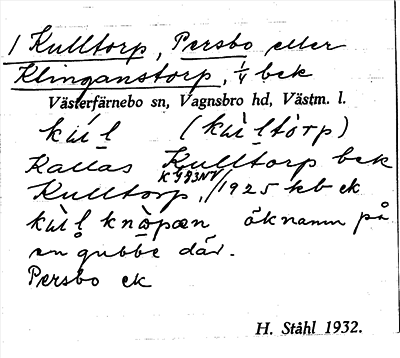 1 Kulltorp, Persbo eller
Klinganstorp, ¼ bek
Västerfärnebo sn, Vagnsbro hd, Västm. l.
kùl (kùltòrp)
Kallas Kulltorp bek
Kulltorp, /1925 kb ek
kùl knòpæn öknamn på
en gubbe där.
Persbo ek
H. Ståhl 1932.